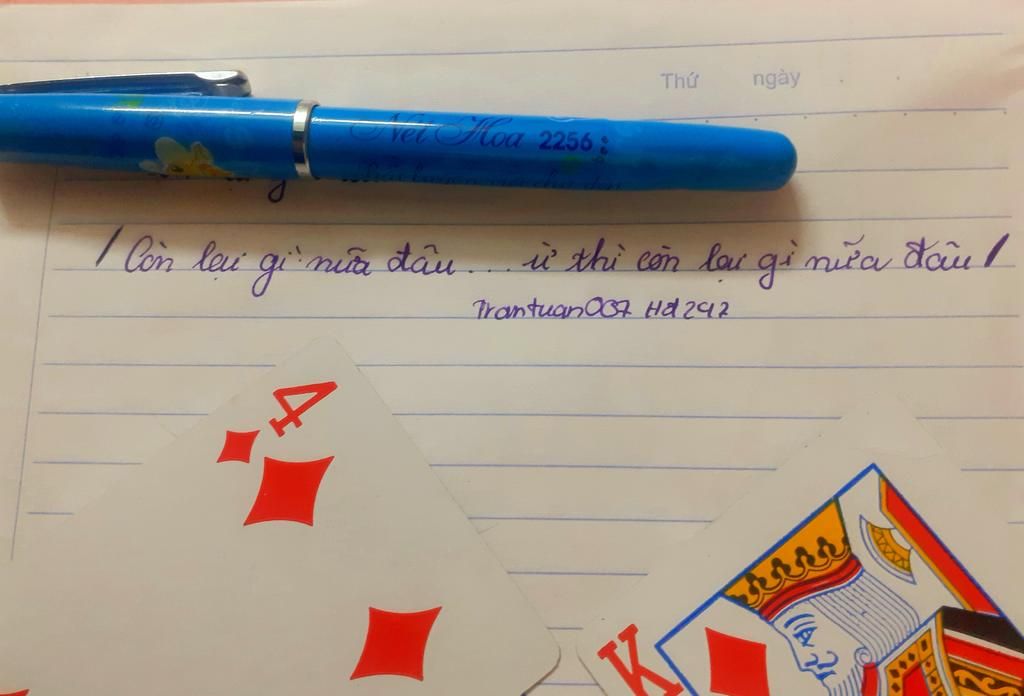 Thứ ngày
Nét Hoa 2256
/ Còn lại gì nữa đâu... ừ thì còn lại gì nữa đâu /
Trantuan007 Hd292
4
K